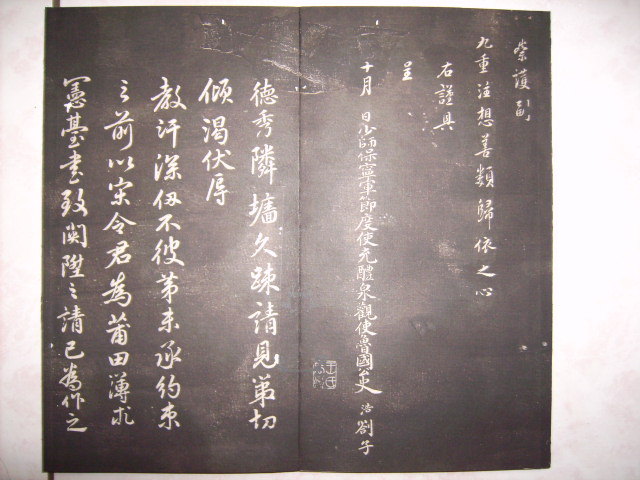 崇護副
九重注想善類歸依之心
右謹具
呈
十月 日少師保寧軍節度使充醴泉觀使魯國公史 浩 劄子
德秀隣墻久踈請見第切
傾渴伏辱
教汗深仭不彼第未承約束
之前以宋令君為莆田薄求
憲臺書致関陞之請已為作之